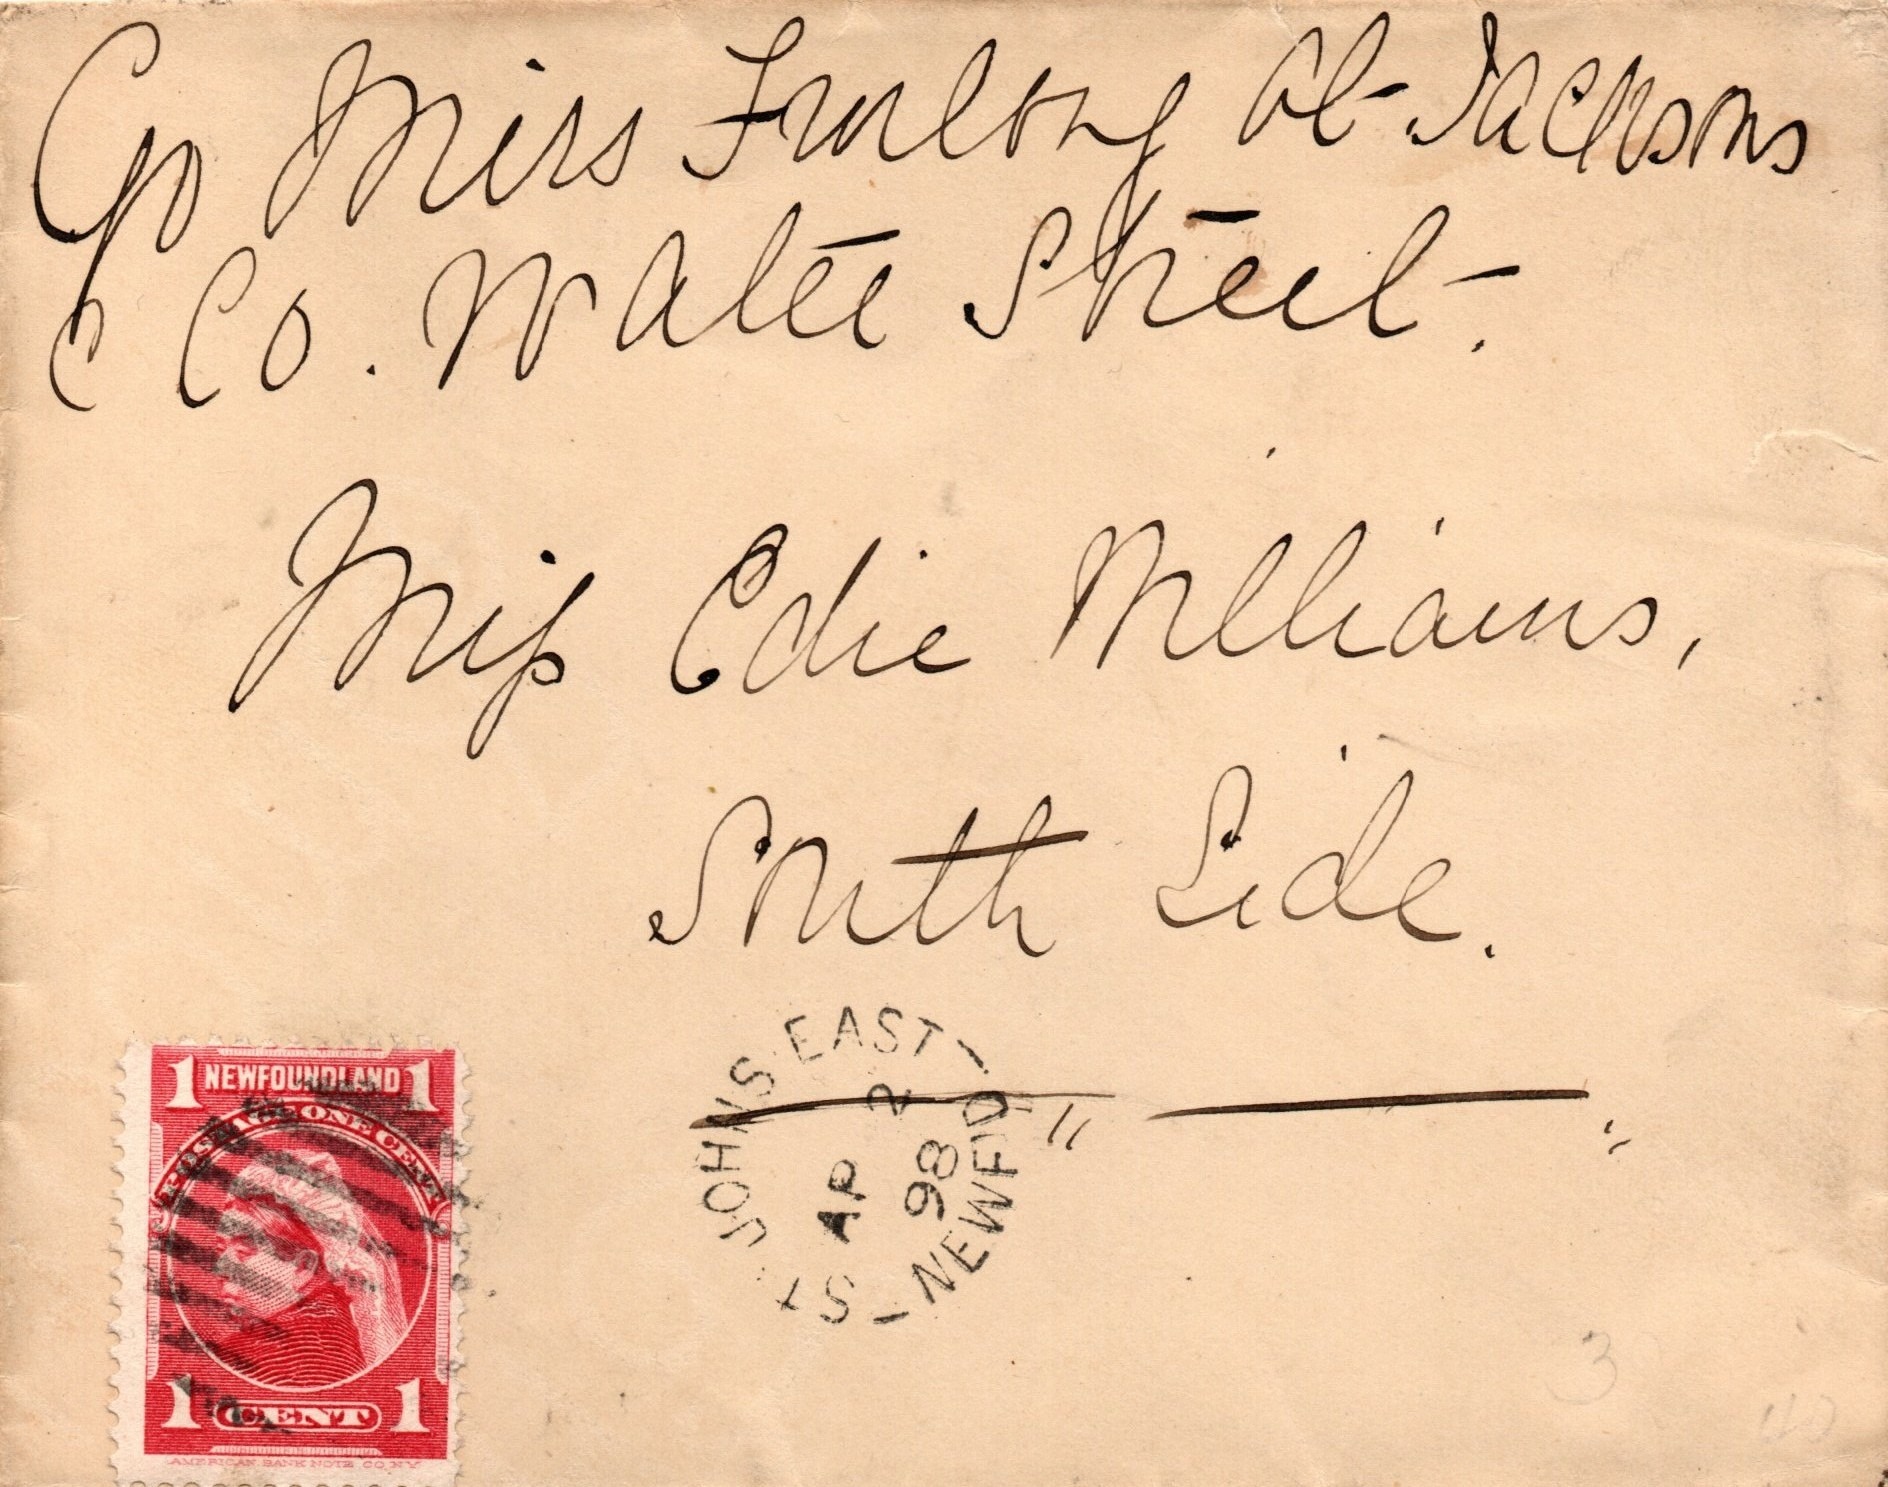 C/o Miss Furlong at Jacksons
& Co. Water Street.
Miss Edie Williams,
South Side.
" "
ST. JOHNS EAST
NEWFD
AP 2
98
1 NEWFOUNDLAND 1
POSTAGE ONE CENT
1 CENT 1
AMERICAN BANK NOTE CO. N.Y.
3